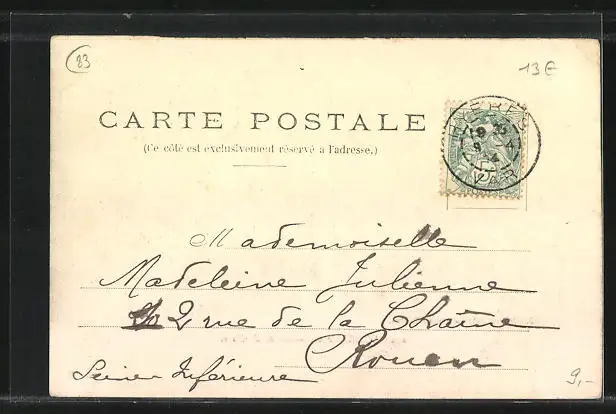 83
13€
CARTE POSTALE
(Ce côté est exclusivement réservé à l'adresse.)
HYÈRES
VAR
Mademoiselle
Madeleine Julienne
2 rue de la Chaîne
Rouen
Seine Inférieure
9,-